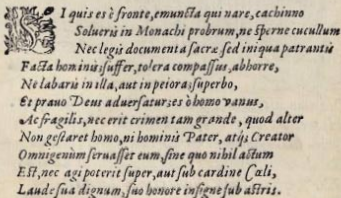 SI quis es è fronte, emuncta qui nare, cachinno
Solueris in Monachi probrum, ne sperne cucullum
Nec legis documenta sacræ sed iniqua patrantis
Facta hominis; suffer, tolera compassus, abhorre,
Ne labaris in illa, aut in peiora; superbo,
Et prauo Deus aduersatur; es ò homo vanus,
Ac fragilis, nec erit crimen tam grande, quod alter
Non gestaret homo, ni hominis Pater, atq; Creator
Omnigenûm seruasset eum, sine quo nihil actum
Est, nec agi poterit super, aut sub cardine Cœli,
Laude sua dignum, suo honore insigne sub astris.